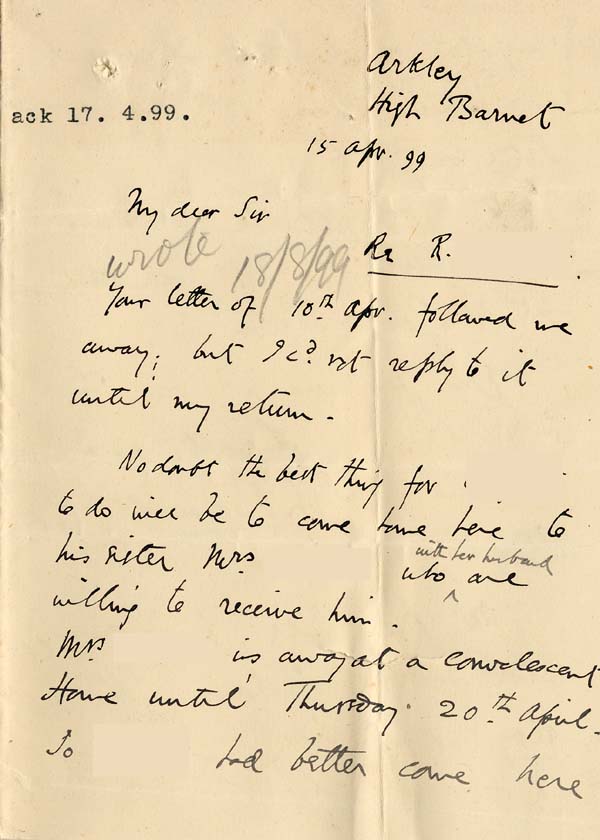 Arkley
High Barnet
ack 17. 4.99.
15 Apr. 99
My dear Sir
wrote 18/8/99
Re R.
Your letter of 10th Apr. followed me
away; but I cd. not reply to it
until my return.
No doubt the best thing for
to do will be to come home here to
his sister Mrs
with her husband
who are
willing to receive him.
Mrs is away at a convalescent
Home until Thursday 20th April.
So had better come here